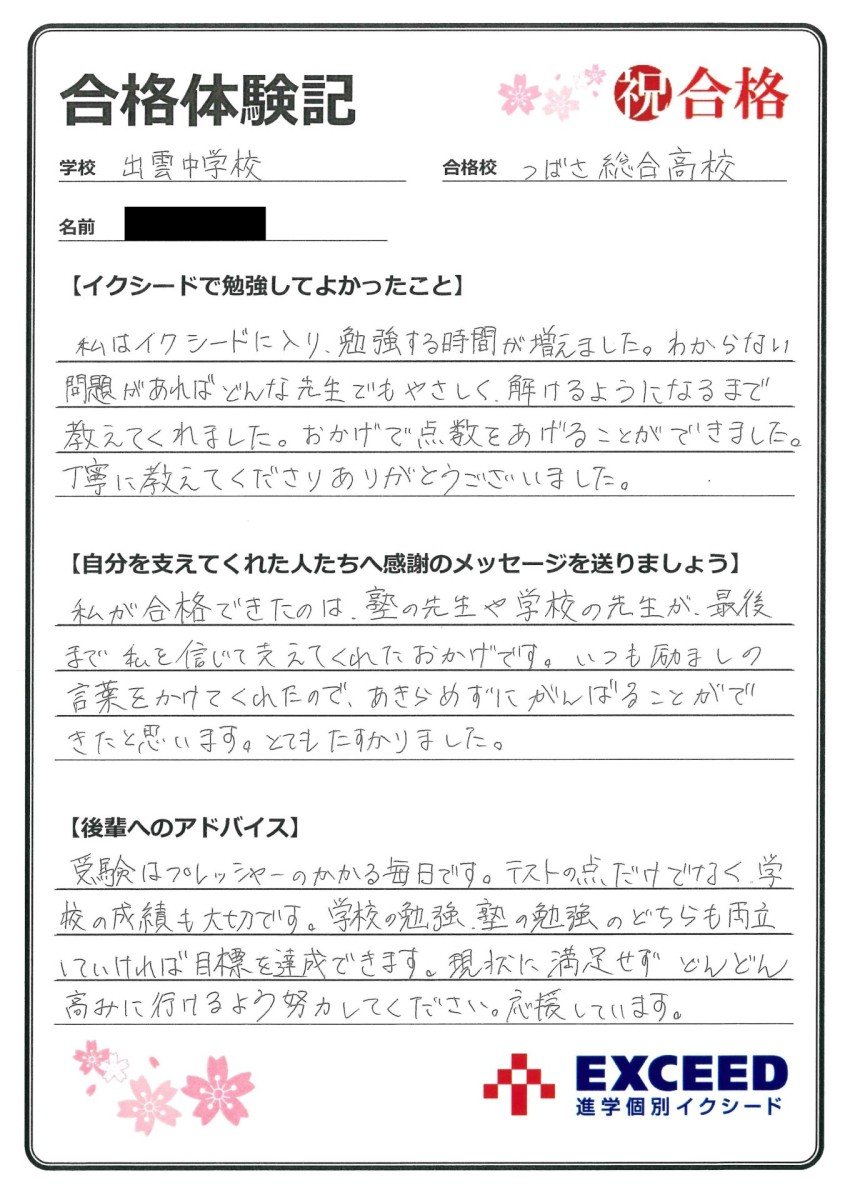 合格体験記
祝合格
学校 出雲中学校
合格校 つばさ総合高校
名前
【イクシードで勉強してよかったこと】
私はイクシードに入り、勉強する時間が増えました。わからない
問題があればどんな先生でもやさしく、解けるようになるまで
教えてくれました。おかげで点数をあげることができました。
丁寧に教えてくださりありがとうございました。
【自分を支えてくれた人たちへ感謝のメッセージを送りましょう】
私が合格できたのは、塾の先生や学校の先生が、最後
まで私を信じて支えてくれたおかげです。いつも励ましの
言葉をかけてくれたので、あきらめずにがんばることがで
きたと思います。とてもたすかりました。
【後輩へのアドバイス】
受験はプレッシャーのかかる毎日です。テストの点だけでなく、学
校の成績も大切です。学校の勉強、塾の勉強のどちらも両立
していければ目標を達成できます。現状に満足せずどんどん
高みに行けるよう努力してください。応援しています。
EXCEED
進学個別イクシード